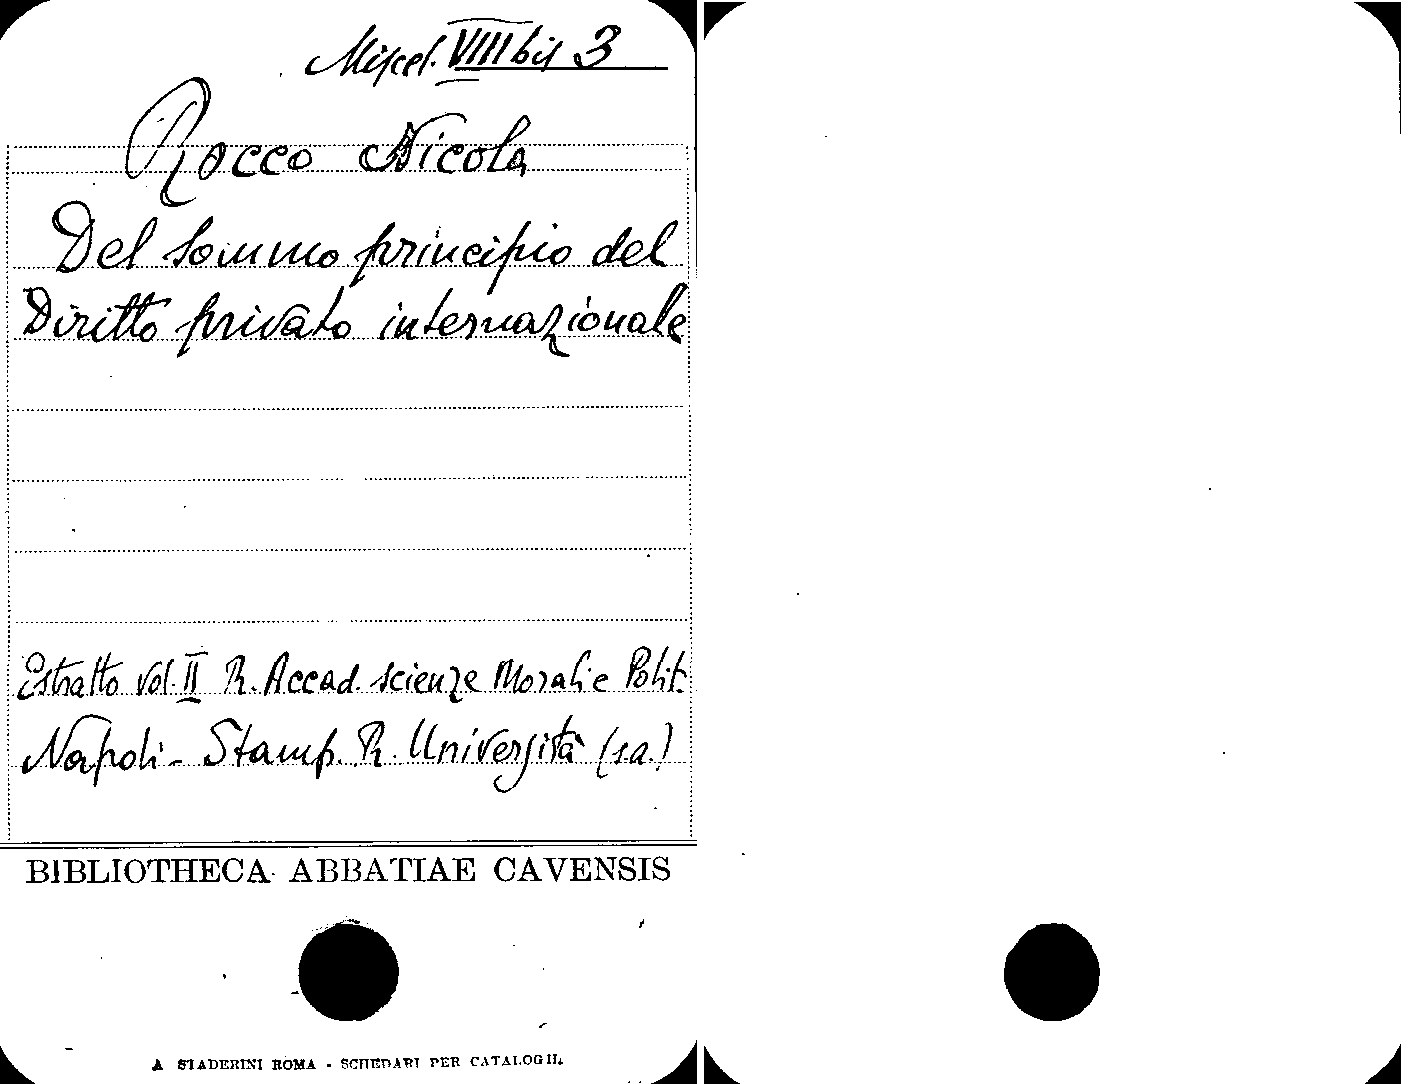 Miscel. VIII bis 3
Rocco Nicola
Del sommo principio del
Diritto privato internazionale
Estratto vol. II R. Accad. scienze Morali e Polit.
Napoli - Stamp. R. Università (s.a.)
BIBLIOTHECA ABBATIAE CAVENSIS
A STADERINI ROMA - SCHEDARI PER CATALOGHI.